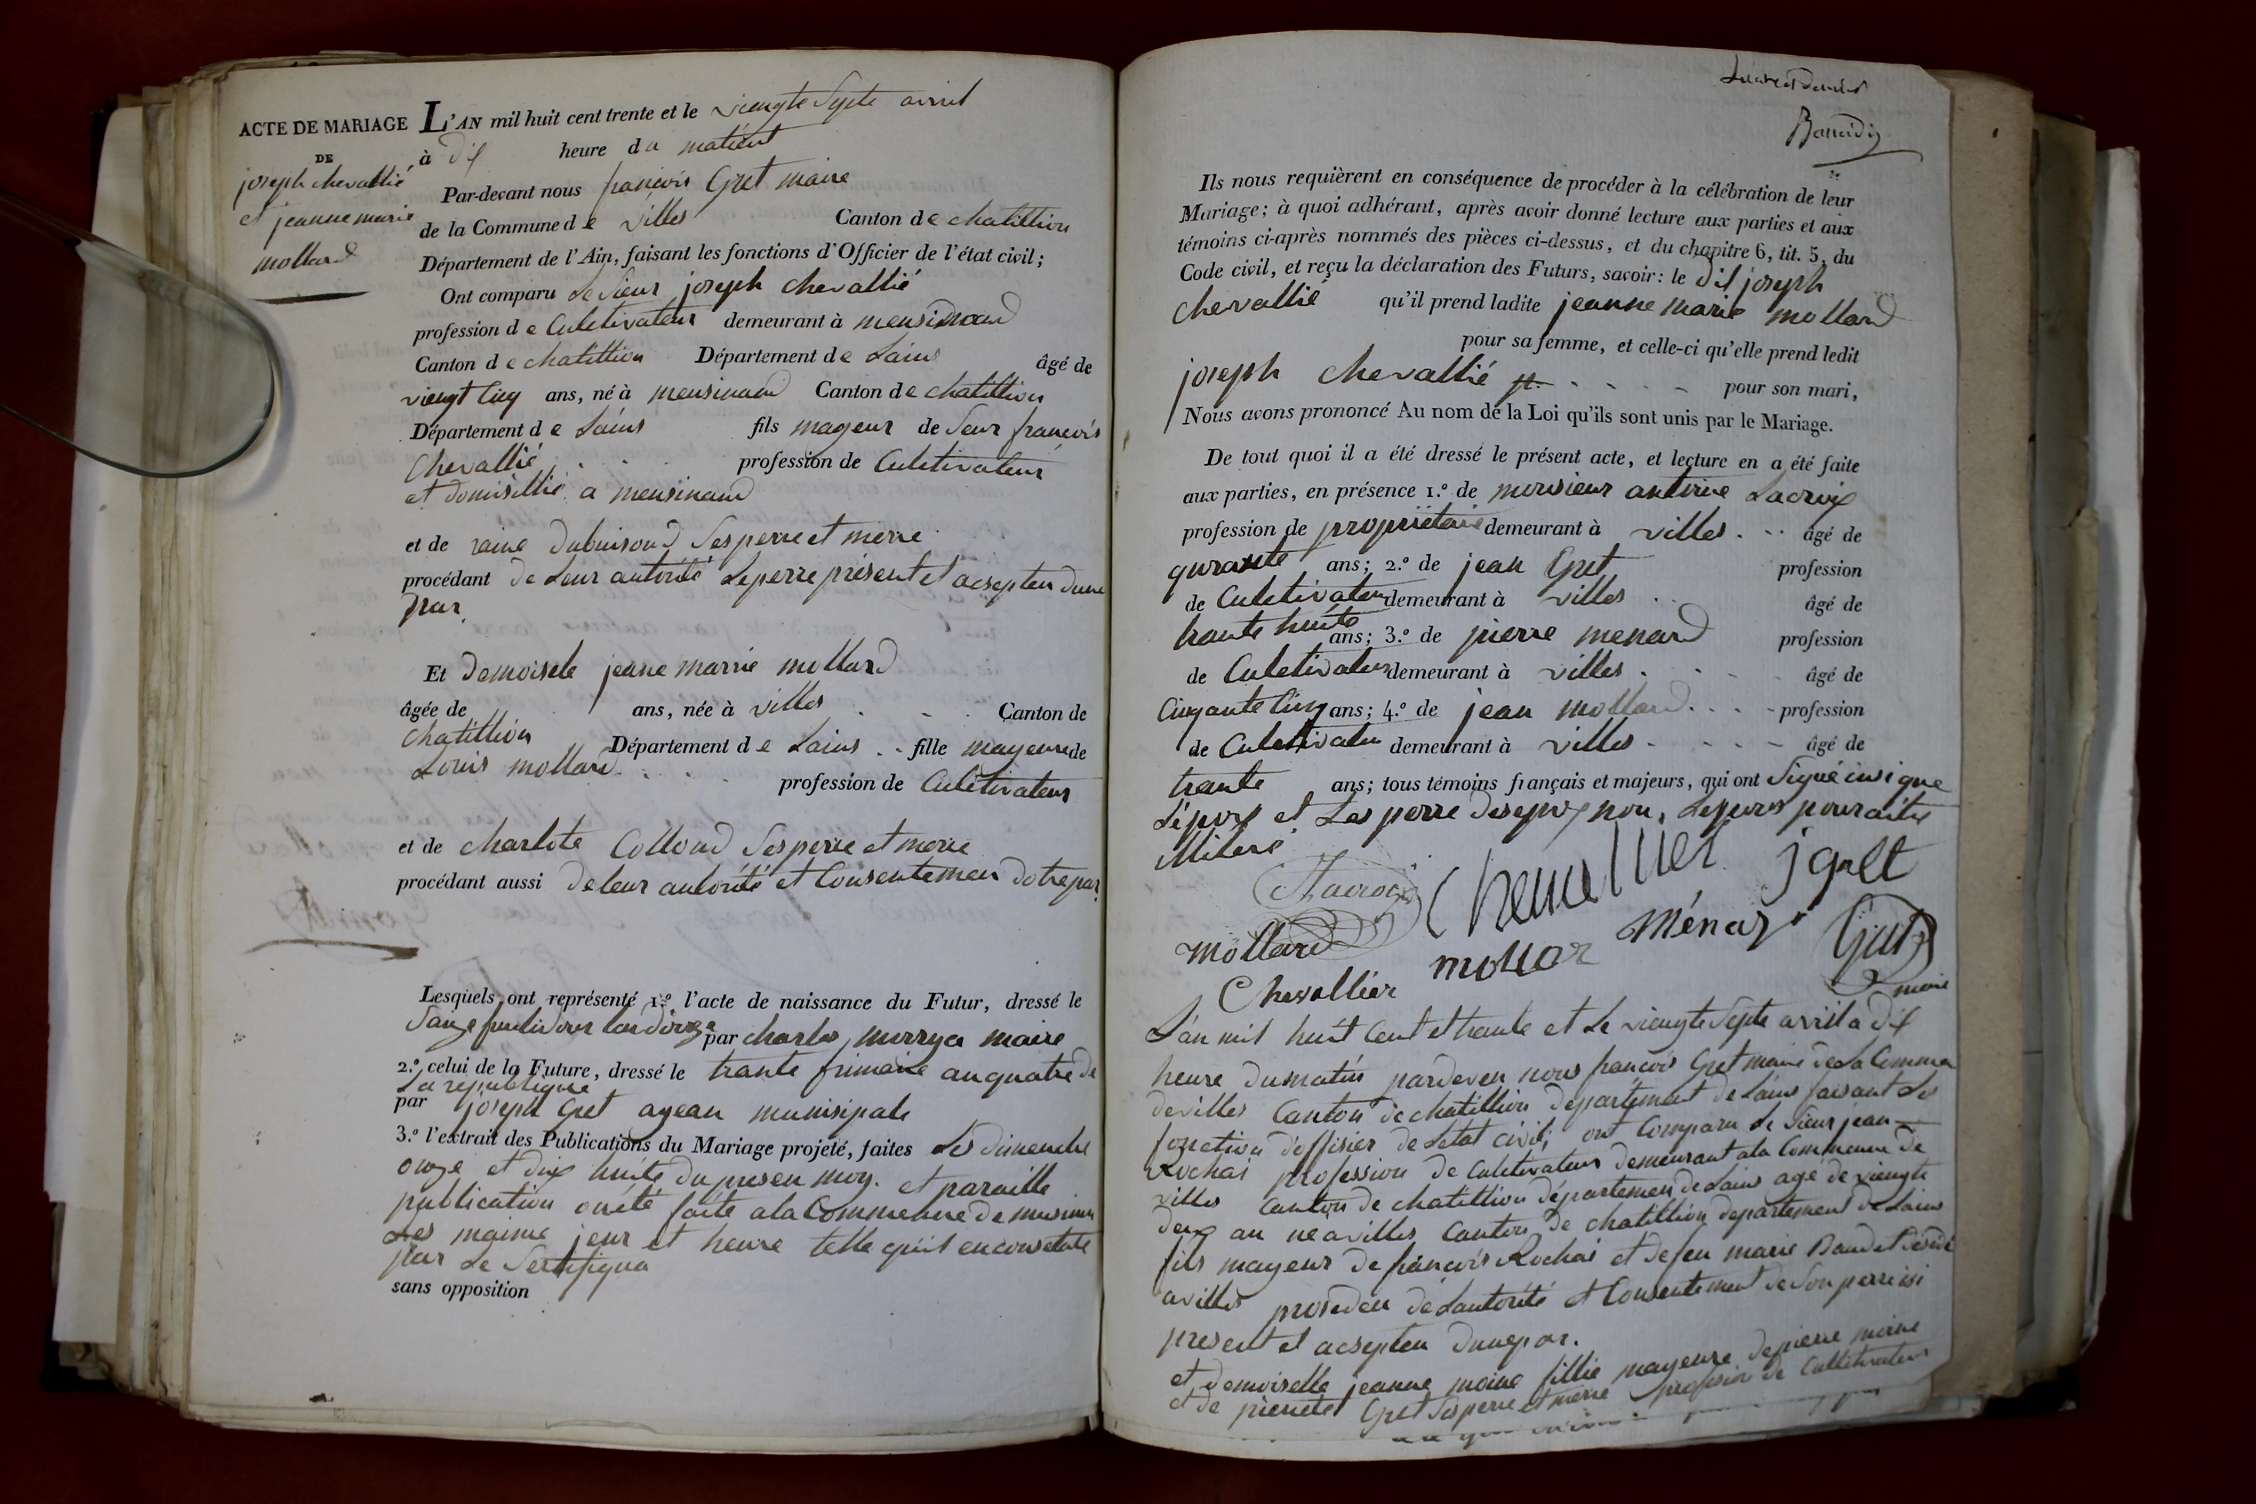 ACTE DE MARIAGE
DE
joseph chevallié
et jeanne marie
mollard
L'AN mil huit cent trente et le viengte Septe avril
à dix heure du matient
Par-devant nous françois Gret maire
de la Commune de villes Canton de chatillion
Département de l'Ain, faisant les fonctions d'Officier de l'état civil;
Ont comparu Le Sieur joseph chevallié
profession de Culetivateur demeurant à mensinaud
Canton de chatillion Département de Lains âgé de
viengt Cinq ans, né à mensinaud Canton de chatillion
Département de Lains fils mayeur de Seur francois
Chevallié profession de Culetivateur
et domisillié a mensinaud
et de raine dubuisoud Ses perre et merre
procédant de Leur autorité Le perre présent et acsepten dune
par
Et Demoisele jeane marrie mollard
âgée de ans, née à villes Canton de
chatillion Département de Lains fille mayeure de
Louis mollard profession de Culetivateur
et de charlote Colloud Ses perre et merre
procédant aussi de leur autorité et Consentemen dotre par
Lesquels ont représenté 1.º l'acte de naissance du Futur, dressé le
par charles morrya maire
2.º celui de la Future, dressé le trante frimaire an quatre de
La republique
par joseph Gret agean munisipale
3.º l'extrait des Publications du Mariage projeté, faites Les dimenche
onze et dix huite du presen moy. et paraille
publication onété faite ala Commenne de musinen
Les maime jeur et heure telle qu'il enconstate
par Le Sertifiqua
sans opposition
Ils nous requièrent en conséquence de procéder à la célébration de leur
Mariage; à quoi adhérant, après avoir donné lecture aux parties et aux
témoins ci-après nommés des pièces ci-dessus, et du chapitre 6, tit. 5, du
Code civil, et reçu la déclaration des Futurs, savoir: le dit joseph
chevallié qu'il prend ladite jeanne marie mollard
pour sa femme, et celle-ci qu'elle prend ledit
joseph chevallié pour son mari,
Nous avons prononcé Au nom de la Loi qu'ils sont unis par le Mariage.
De tout quoi il a été dressé le présent acte, et lecture en a été faite
aux parties, en présence 1.º de monsieur antoine Lacroix
profession de propriétaire demeurant à villes âgé de
qurante ans; 2.º de jean Gret profession
de Culetivateur demeurant à villes âgé de
trante huite ans; 3.º de pierre menard profession
de Culetivateur demeurant à villes âgé de
Cinqante Cinq ans; 4.º de jean mollard profession
de Culetivateu demeurant à villes âgé de
trante ans; tous témoins français et majeurs, qui ont Signé insi que
L'épox et Les perre des epox non, Lepous pour aitre
Militere
Alacroix Chevallier jgrett
mollard mollar Ménard Gret
Chevallier maire
L'an mil huit Cent et trante et Le viengte Septe avrill a dix
heure du matin pardeven nous francois Gret maire de La Commen
de villes Canton de chatillion departement de Lains faisant Les
fonction d'offisier de Letat civil; ont Comparu Le Sieur jean
Rochai profession de Culetivateur demeurant ala Commenne de
villes Canton de chatillion departemen de Lains agé de viengte
deux an ne a villes Canton de chatillion departement de Lains
fils mayeur de francois Rochai et de feu marie Baudet
a villes proseden de Lautorité et Consentement de Son perre isi
present et acsepten dune par.
et demoiselle jeanne moine fillie mayeure de pierre moine
et de pierrete Gret Ses perre et merre profesion de Culletivateur